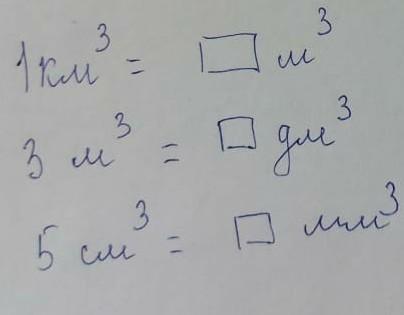 1 км³ = □ м³
3 м³ = □ дм³
5 см³ = □ мм³